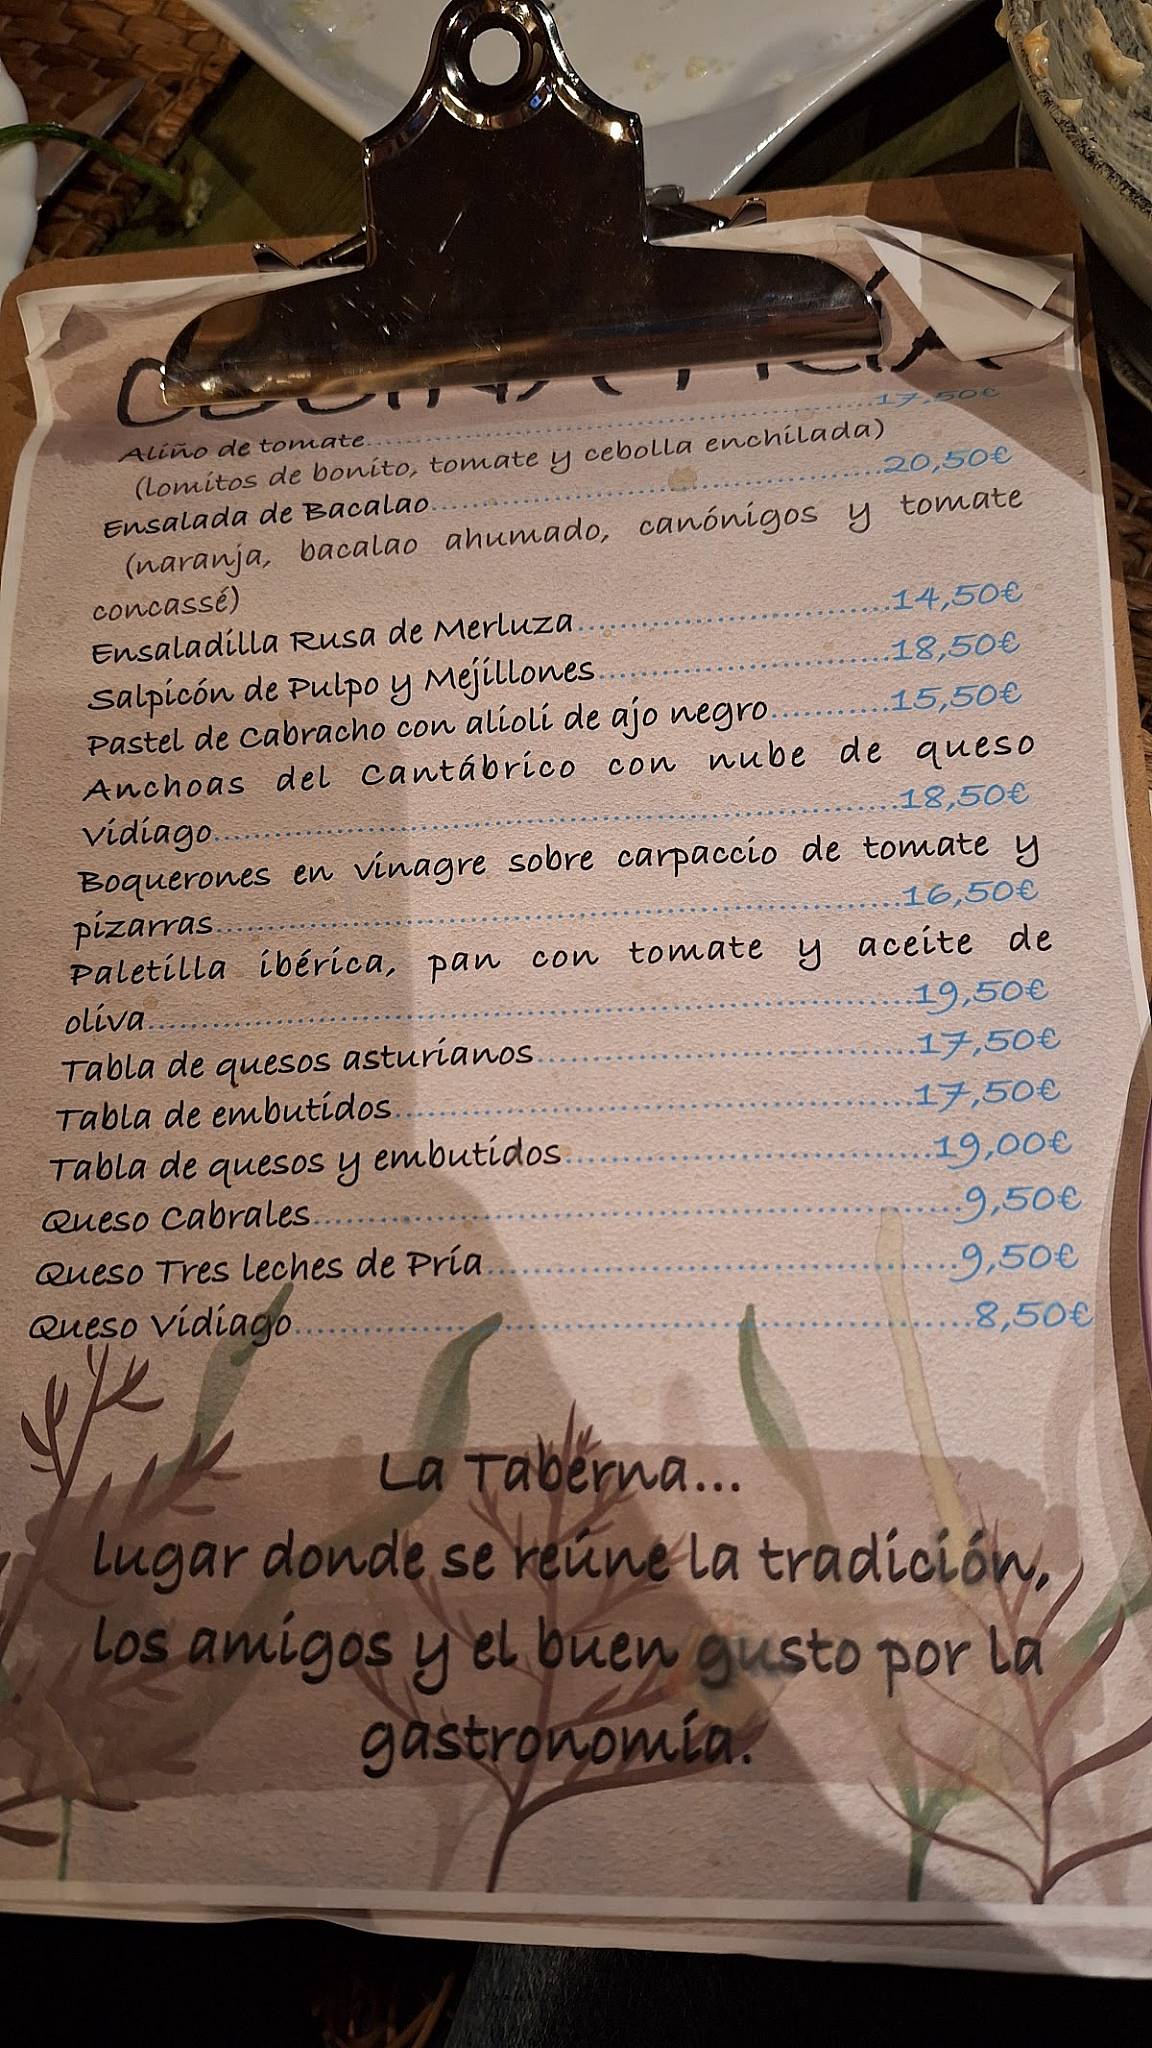 COCINA FRÍA
Aliño de tomate................17.50€
(lomitos de bonito, tomate y cebolla enchilada)
Ensalada de Bacalao................20,50€
(naranja, bacalao ahumado, canónigos y tomate
concassé)
Ensaladilla Rusa de Merluza................14,50€
Salpicón de Pulpo y Mejillones................18,50€
Pastel de Cabracho con alioli de ajo negro............15,50€
Anchoas del Cantábrico con nube de queso
Vidiago................18,50€
Boquerones en vinagre sobre carpaccio de tomate y
pizarras................16,50€
Paletilla ibérica, pan con tomate y aceite de
oliva................19,50€
Tabla de quesos asturianos................17,50€
Tabla de embutidos................17,50€
Tabla de quesos y embutidos................19,00€
Queso Cabrales................9,50€
Queso Tres leches de Pría................9,50€
Queso Vidiago................8,50€
La Taberna...
lugar donde se reúne la tradición,
los amigos y el buen gusto por la
gastronomía.